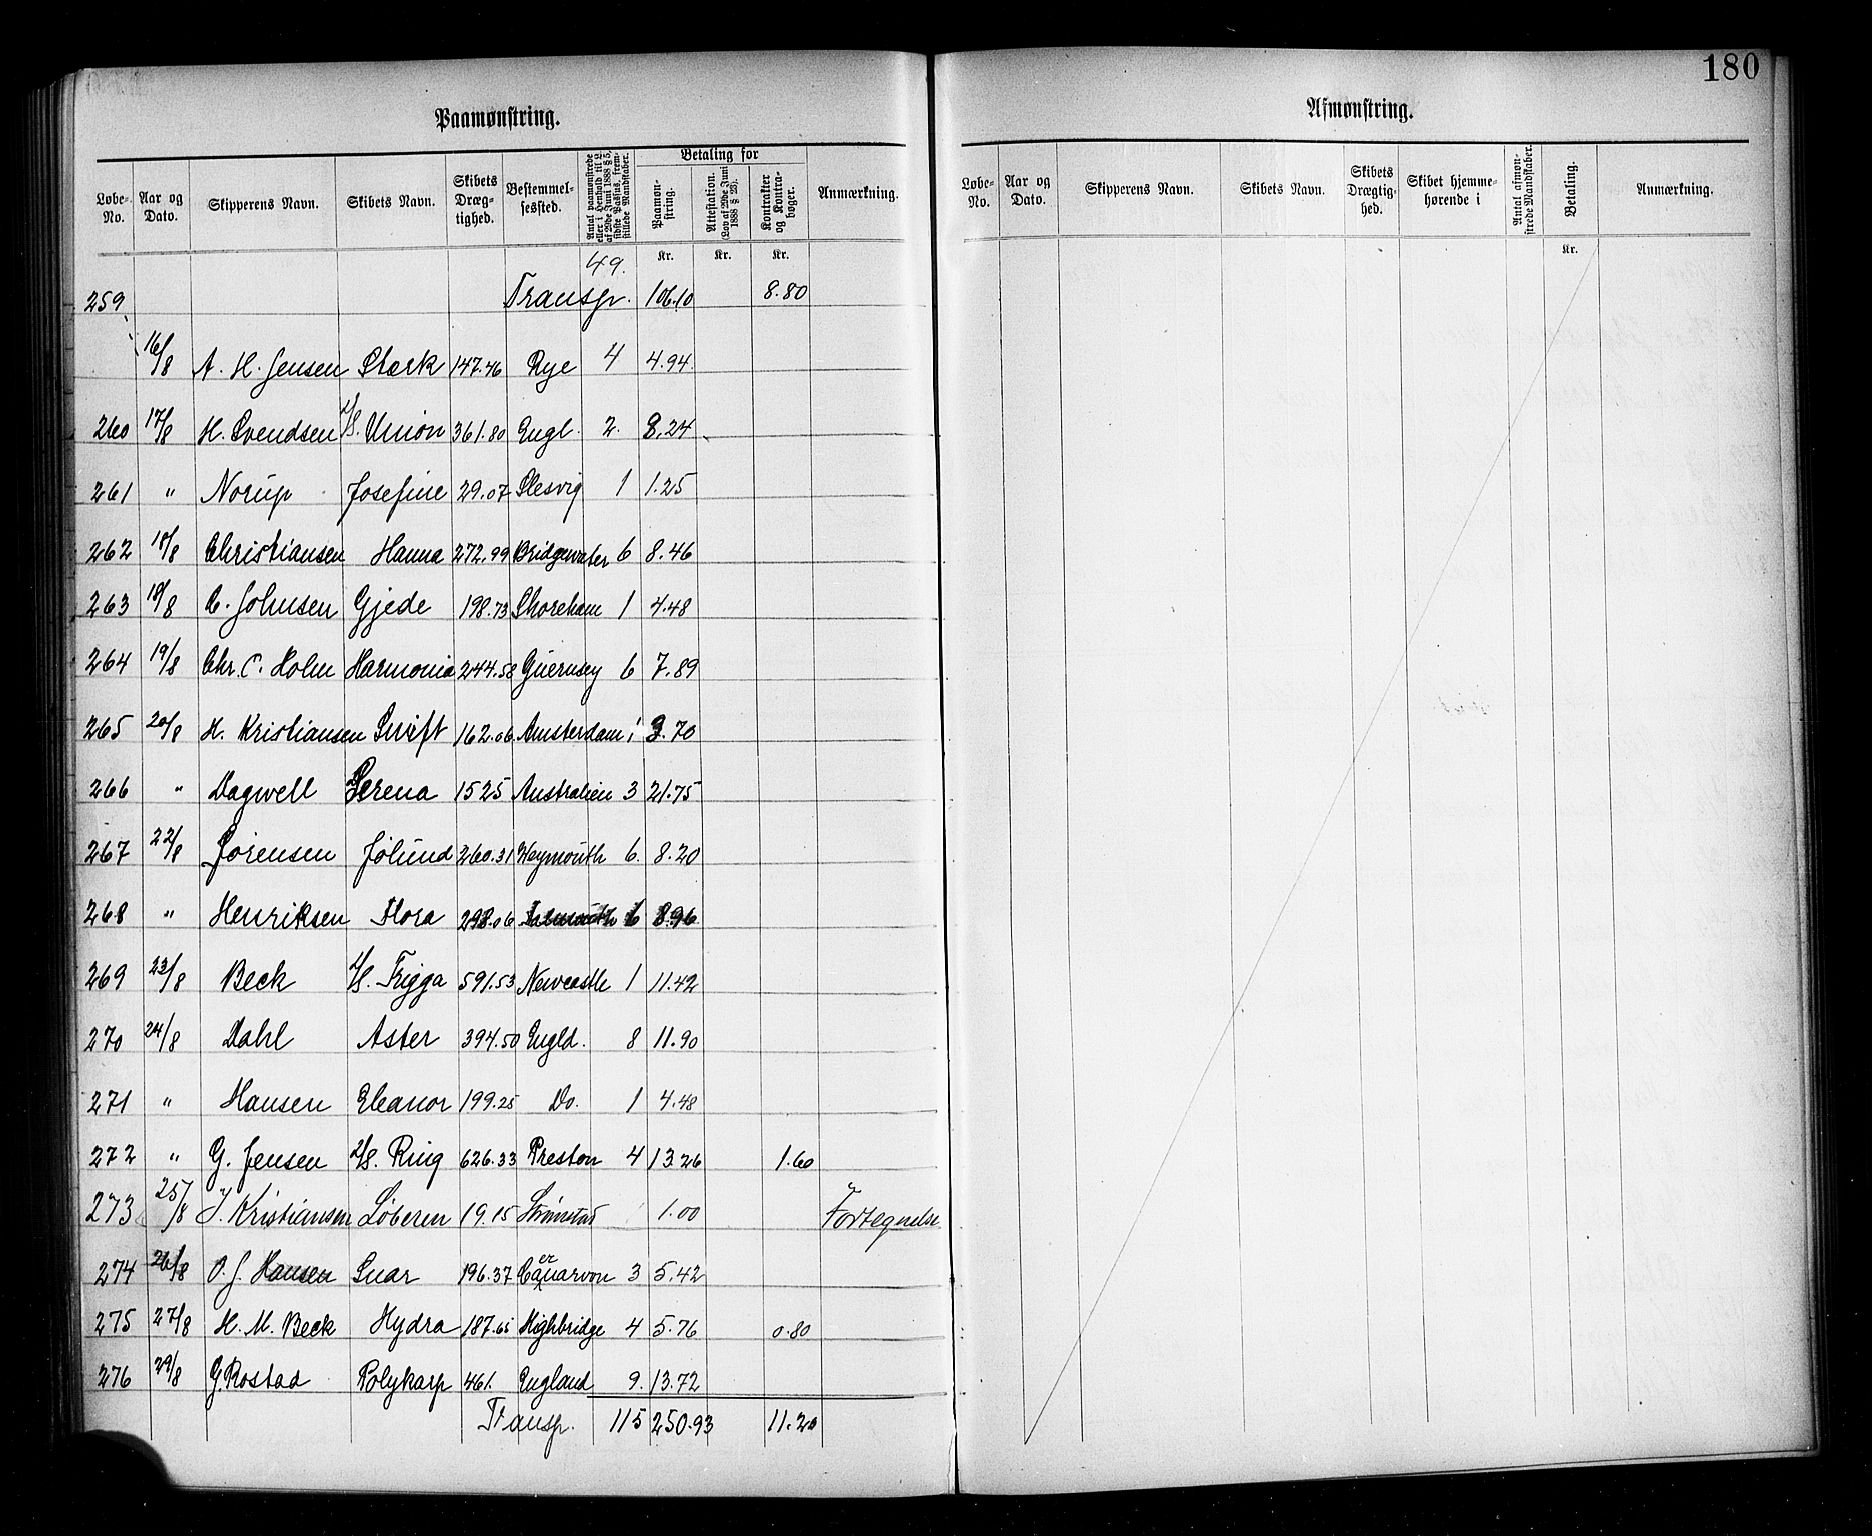 180
Paamønstring.
Løbe-No. Aar og Dato. Skipperens Navn. Skibets Navn. Skibets Dræg-tighed. Bestemmel-sessted. Antal paamønstrede eller i Henhold til L. af 29de Juni 1888 § 5, sidste Passus, frem-stillede Mandskaber. Betaling for Paamøn-string. Attestation. (Lov af 29de Juni 1888 § 23). Kontrakter og Kontra-bøger. Anmærkning.
Kr. Kr. Kr.
49.
259 Transp. 106.10 8.80
16/8 A. H. Jensen Stærk 147.46 Rye 4 4.94
260 17/8 H. Svendsen D/S. Union 361.80 Engl. 2. 8.24
261 " Norup Josefine 29.07 Slesvig 1 1.25
262 18/8 Christiansen Hanna 272.99 Bridgewater 6 8.46
263 18/8 C. Johnsen Gjede 198.73 Shoreham 1 4.48
264 19/8 Chr. C. Holm Harmonia 244.58 Guernsey 6 7.89
265 20/8 H. Kristiansen Swift 162.06 Amsterdam 1 3.70
266 " Dagwell Serena 1525 Australien 3 21.75
267 22/8 Sørensen Jølund 260.31 Weymouth 6. 8.20
268 " Henriksen Flora 298.06 Falmouth 6 8.96
269 23/8 Beck D/S. Frigga 591.53 Newcastle 1 11.42
270 24/8 Dahl Aster 394.50 Engld. 8 11.90
271 " Hansen Eleanor 199.25 Do. 1 4.48
272 " G. Jensen D/S. Ring 626.33 Preston 4 13.26 1.60
273 25/8 J. Kristiansen Løberen 19.15 Strømstad 1.00 Fortegnelse
274 26/8 O. J. Hansen Snar 196.37 Caernarvon 3 5.42
275 27/8 H. M. Beck Hydra 187.65 Highbridge 4 5.76 0.80
276 29/8 G. Rostad Polykarp 461. England 9. 13.72
Transp. 115 250.93 11.20
Afmønstring.
Løbe-No. Aar og Dato. Skipperens Navn. Skibets Navn. Skibets Drægtig-hed. Skibet hjemme-hørende i Antal afmøn-strede Mandskaber. Betaling. Anmærkning.
Kr.